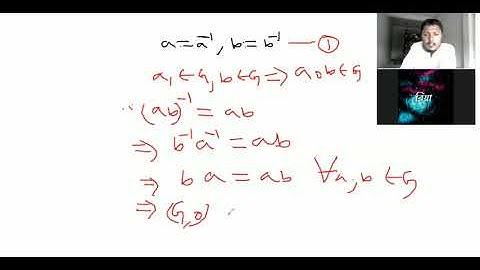 a = a⁻¹, b = b⁻¹ — ①
a, ∈ G, b ∈ G ⇒ a o b ∈ G
∵ (ab)⁻¹ = ab
⇒ b⁻¹ a⁻¹ = ab
⇒ b a = ab ∀ a, b ∈ G
⇒ (G, o)